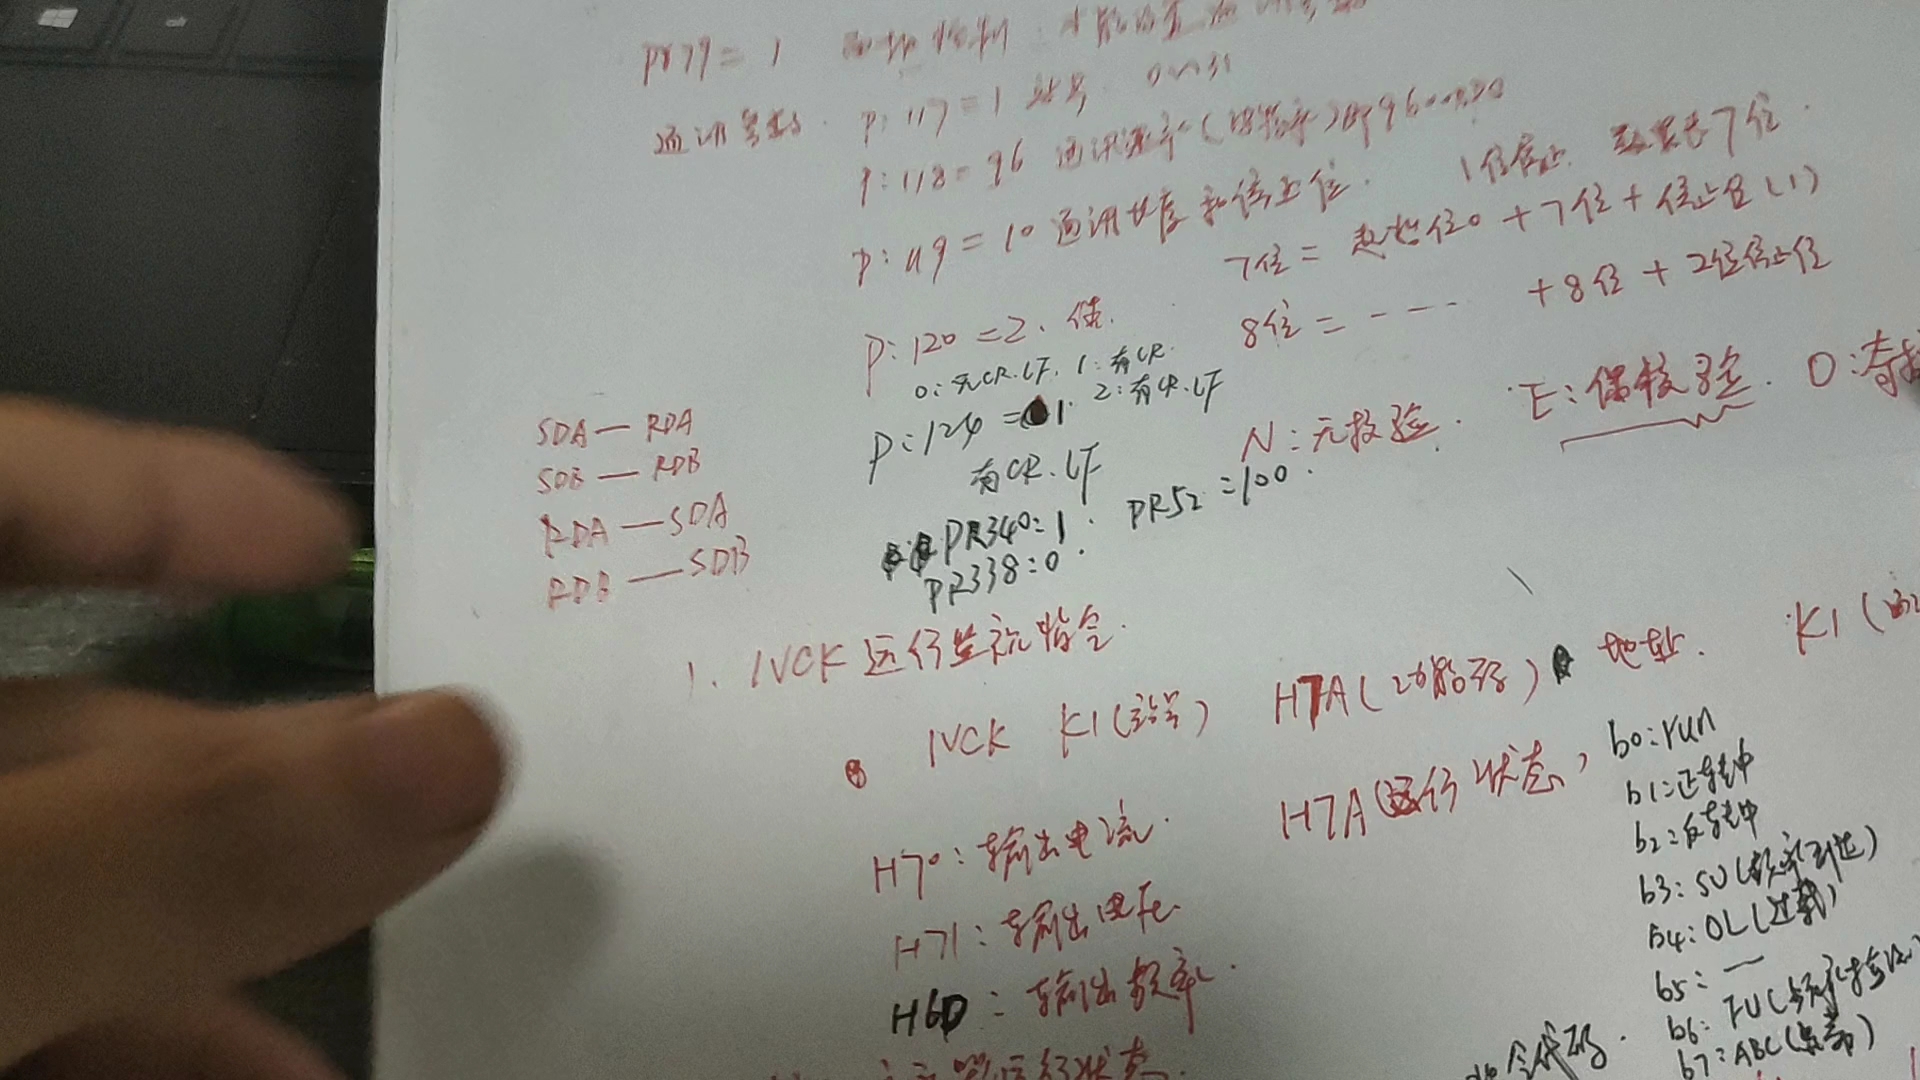 Pr79 = 1
通讯参数. Pr 117 = 1 站号 0~31
P: 118 = 96 通讯速率 (波特率) 即9600
P: 119 = 10 通讯长度和停止位. 1位停止. 数据长7位.
7位 = 起始位0 + 7位 + 停止位(1)
8位 = - - - - + 8位 + 2位停止位
P: 120 = 2.
0: 无CR.LF. 1: 有CR.
2: 有CR.LF
P: 124 = 1.
有CR.LF
N: 无校验. E: 偶校验. O: 奇
SDA — RDA
SDB — RDB
RDA — SDA
RDB — SDB
PR340=1. PR52=100.
PR338=0
1. IVCK 运行监视指令.
IVCK K1(站号) H7A(功能码) 地址. K1
H70: 输出电流. H7A(运行状态)
H71: 输出电压.
H6D: 输出频率.
b0: run
b1: 正转中
b2: 反转中
b3: SU(频率到达)
b4: OL(过载)
b5: —
b6: FU(
b7: ABC(
运行状态.